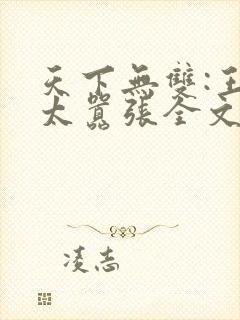 天下無雙:王
太囂張全文
凌志